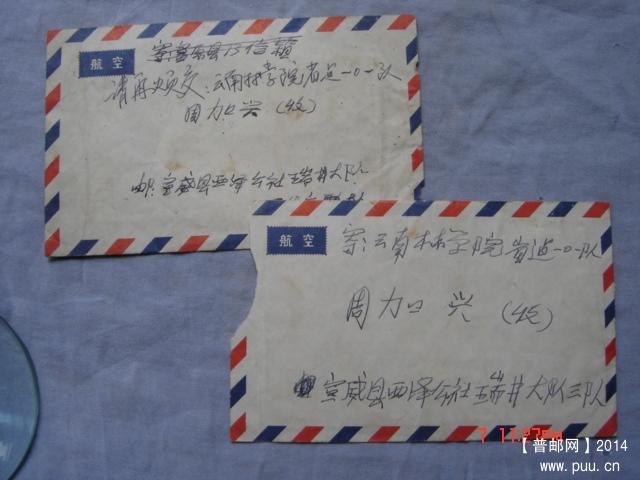 航空
寄
请再烦交:云南林学院省近一〇一队
周加兴(收)
邮:宣威县西泽公社瑞井大队
航空
寄:云南林学院省近一〇一队
周加兴(收)
邮宣威县西泽公社瑞井大队三队
7 11:27PM
【普邮网】2014
www.puu.cn